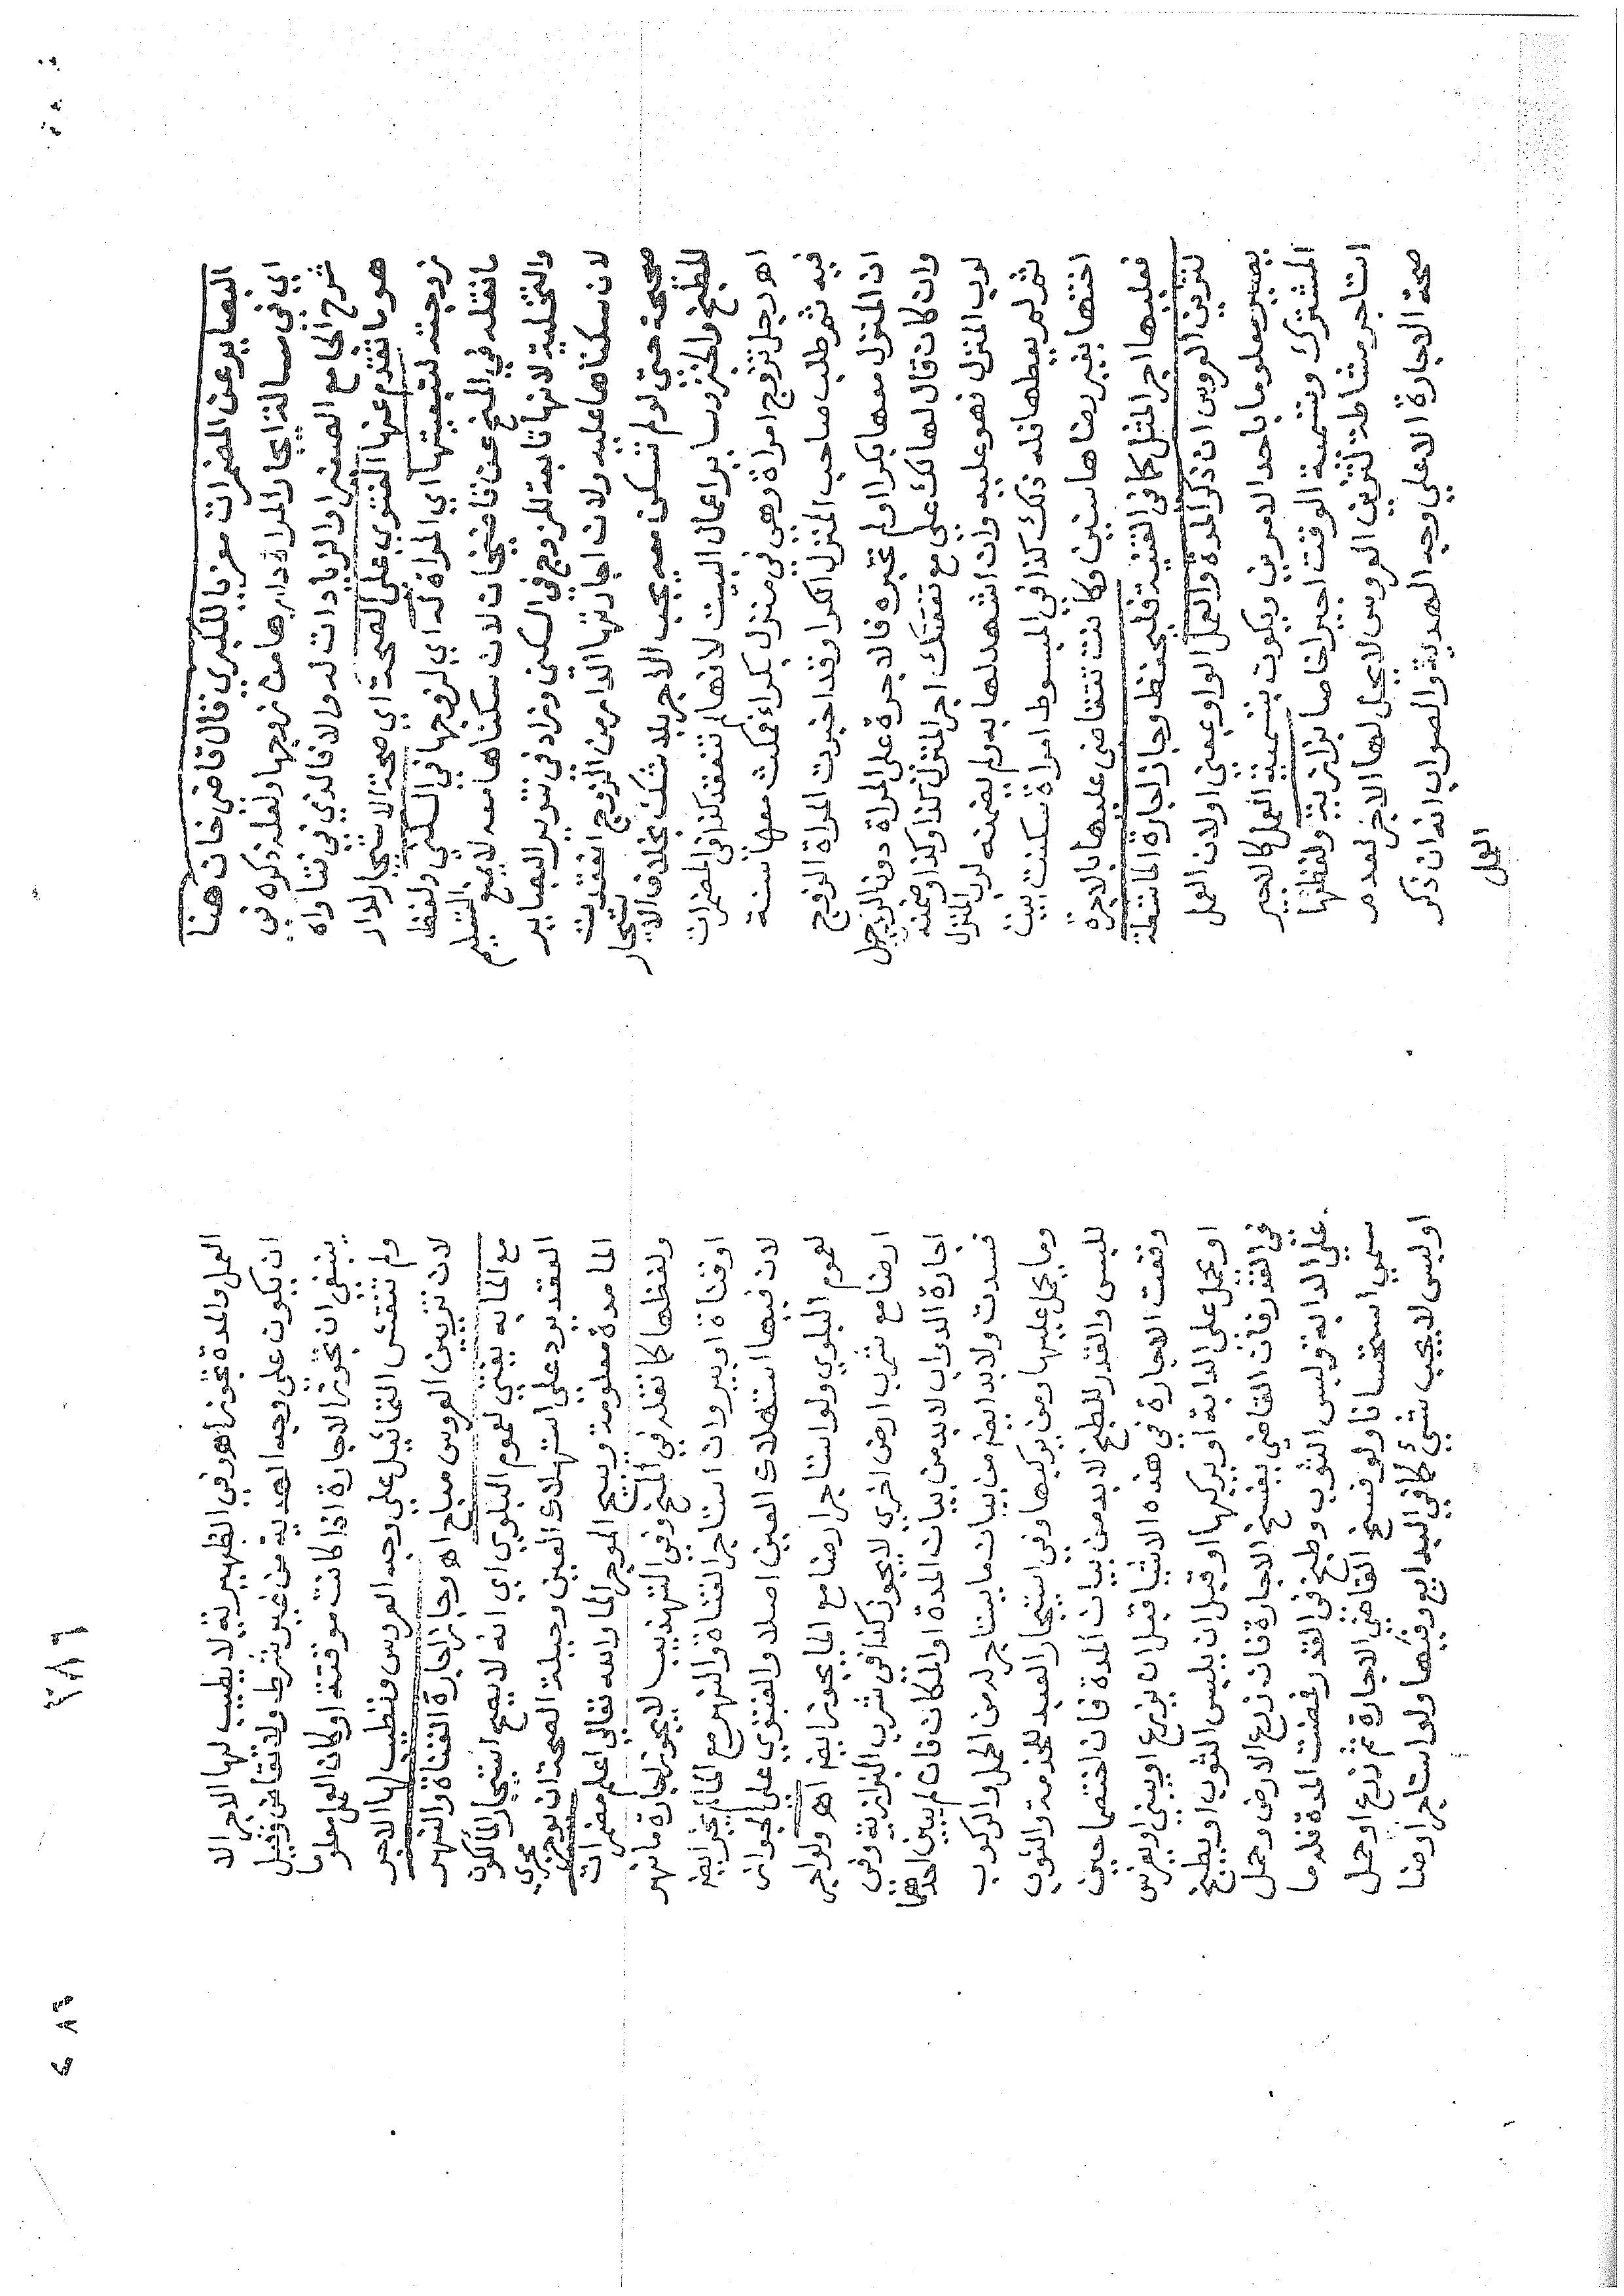 البصاير عن المضمرات معزيا للكبري قال قاضي خان هنا
اي في مسالة ايجار المراة دارها من زوجها ولعله ذكره في
شرح الجامع الصغير او الزيادات له والا فالذي في فتاواه
هو ما تقدم عنها الفتوي علي الصحة اي صحة الاستيجار لدار
زوجته لتبعيتها اي المراة له اي لزوجها في السكني ولفظ
ما نقله في المنح عن قاضيخان لان سكناها معه لا يمنع التسليم
والتخلية لانها تابعة للزوج في السكني وزاد في تنوير البصاير
لان سكناها عليه ولان اجارتها الدار من الزوج انعقدت
صحيحة حتي لو لم تسكن معه يجب الاجر بلا شك بخلاف الاستيجار
للطبخ والخبز وساير اعمال البيت لانها لم تنعقد كذا في المضمرات
اهـ رجل تزوج امراة وهي في منزل بكراء فمكث معها سنة
فيه ثم طلب صاحب المنزل الكرا وقد اخبرت المراة الزوج
ان المنزل معها بكرا او لم تخبره فالاجرة علي المراة دون الرجل
وان كان قال لها لك علي مع نفقتك اجر المنزل كذا وكذا وضمنه
لرب المنزل فهو عليه وان اشهد لها به ولم يضمنه لرب المنزل
ثم لم يعطها فله ذلك كذا في المبسوط امراة سكنت بيت
اختها بغير رضاها سنين وكانت تتقاضي عليها بالاجرة
فعليها اجر المثل كما في القنية فليحفظ وجاز اجارة الماشطة
لتزين العروس ان ذكر المدة والعمل الواو بمعني او لان العمل
يصير معلوما باحد الامرين ويكون بتسمية العمل كالاجير
المشترك وبتسمية الوقت اجيرا خاصا بزازية ولفظها
استاجر مشاطة لتزين العروس لا يحل لها الاجر لعدم
صحة الاجارة الا علي وجه الهدية والصواب انه ان ذكر
العمل
العمل والمدة تجوز اهـ وفي الظهيرية لا يطيب لها الاجر الا
ان يكون علي وجه الهدية من غير شرط ولا تقاض وقيل
ينبغي ان تجوز الاجارة اذا كانت موقتة او كان العمل معلوما
ولم تنقش التماثيل علي وجه العروس ونطيب لها الاجر
لان تزيين العروس مباح اهـ وجاز اجارة القناة والنهر
مع الما به يفتي لعموم البلوي اي انه لا يصح استيجار الماكون
العقد يرد علي استهلاك العين وحيلة الصحة ان يوجر مجري
الما مدة معلومة ويبيح الموجر الما والله تعالي اعلم مضمرات
ولفظها كما نقله في المنح وفي التهذيب لا يجوز اجارة ما نهر
او قناة او بير وان استاجر القناة والنهر مع الما لم يجز ايضا
لان فيها استهلاك العين اصلا والفتوي علي الجواز
لعموم البلوي ولو استاجر ارضا مع الما يجوز ايضا اهـ ولو اجر
ارضا مع شرب ارض اخري لا يجوز كذا في شرب البزازية وفي
اجارة الدواب لابد من بيان المدة او المكان فان لم يبين احدهما
فسدت ولابد ايضا من بيان ما يستاجر له من الحمل والركوب
وما يحمل عليها ومن يركبها وفي استيجار العبد للخدمة والثوب
للبس والقدر للطبخ لابد من بيان المدة فان اختصما حين
وقعت الاجارة في هذه الاشيا قبل ان يزرع او يبني او يغرس
او يحمل علي الدابة او يركبها او قبل ان يلبس الثوب او يطبخ
في القدر فان القاضي يفسخ الاجارة فان زرع الارض وحمل
علي الدابة ولبس الثوب وطبخ في القدر فمضت المدة فله ما
سمي استحسانا ولو فسخ القاضي الاجارة ثم زرع او حمل
او لبس لا يجب شيء كما في البدايع وفيها ولو استاجر ارضا
٢٨٦